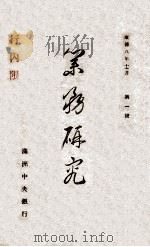 康德八年十二月　第一號
業務研究
滿洲中央銀行